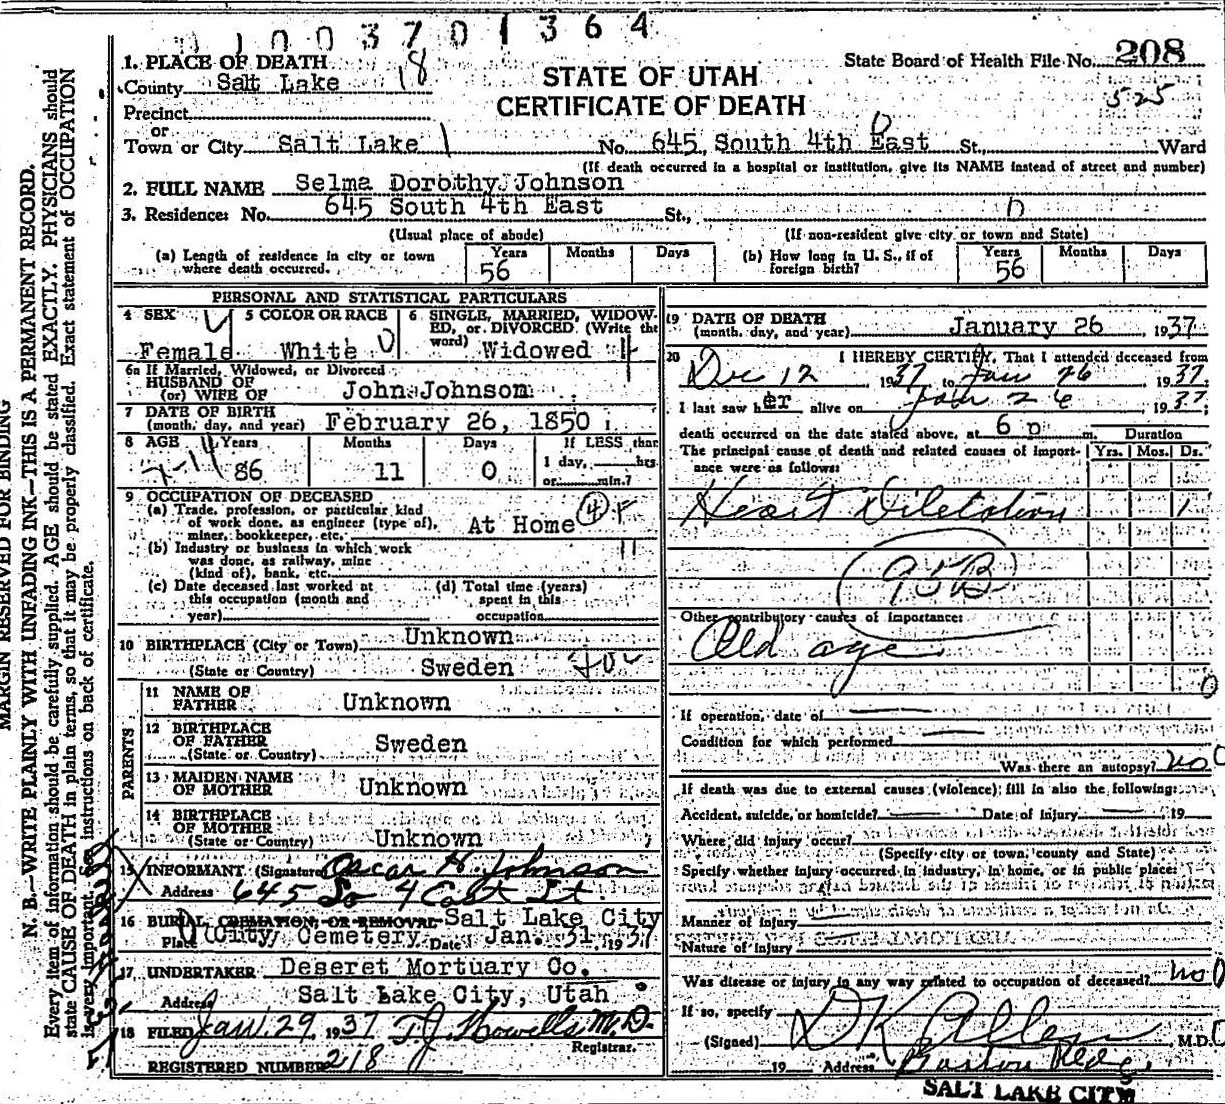 1003701364
1. PLACE OF DEATH
County Salt Lake 18
STATE OF UTAH
CERTIFICATE OF DEATH
State Board of Health File No. 208
525
Precinct
or
Town or City Salt Lake 1 No. 645 South 4th East St., Ward
(If death occurred in a hospital or institution, give its NAME instead of street and number)
2. FULL NAME Selma Dorothy Johnson
3. Residence: No. 645 South 4th East St.,
(Usual place of abode) (If non-resident give city or town and State)
(a) Length of residence in city or town where death occurred. Years 56 Months Days
(b) How long in U. S., if of foreign birth? Years 56 Months Days
PERSONAL AND STATISTICAL PARTICULARS
4 SEX Female
5 COLOR OR RACE White
6 SINGLE, MARRIED, WIDOWED, or DIVORCED. (Write the word) Widowed
6a If Married, Widowed, or Divorced
HUSBAND OF
(or) WIFE OF John Johnson
7 DATE OF BIRTH
(month, day, and year) February 26, 1850
8 AGE Years 86 Months 11 Days 0 If LESS than 1 day, hrs. or min.?
9 OCCUPATION OF DECEASED
(a) Trade, profession, or particular kind of work done, as engineer (type of), miner, bookkeeper, etc. At Home 4 F
(b) Industry or business in which work was done, as railway, mine (kind of), bank, etc. 11
(c) Date deceased last worked at this occupation (month and year)
(d) Total time (years) spent in this occupation
10 BIRTHPLACE (City or Town) Unknown
(State or Country) Sweden
PARENTS
11 NAME OF FATHER Unknown
12 BIRTHPLACE OF FATHER
(State or Country) Sweden
13 MAIDEN NAME OF MOTHER Unknown
14 BIRTHPLACE OF MOTHER
(State or Country) Unknown
15 INFORMANT (Signature) Oscar H. Johnson
Address 645 So 4 East St.
16 BURIAL, CREMATION, OR REMOVAL Salt Lake City
Place City Cemetery Date Jan. 31, 1937
17 UNDERTAKER Deseret Mortuary Co.
Address Salt Lake City, Utah
18 FILED Jan 29, 1937 T. J. Howells M.D.
Registrar.
REGISTERED NUMBER 218
19 DATE OF DEATH
(month, day, and year) January 26, 1937
20 I HEREBY CERTIFY, That I attended deceased from
Dec 12 1937, to Jan 26 1937.
I last saw her alive on Jan 26, 1937;
death occurred on the date stated above, at 6 p m.
Duration
The principal cause of death and related causes of importance were as follows: Yrs. Mos. Ds.
Heart Diletation 1
95B
Other contributory causes of importance:
Old age
If operation, date of
Condition for which performed
Was there an autopsy? no
If death was due to external causes (violence) fill in also the following:
Accident, suicide, or homicide? Date of Injury 19
Where did injury occur?
(Specify city or town, county and State)
Specify whether injury occurred in industry, in home, or in public place:
Manner of injury
Nature of injury
Was disease or injury in any way related to occupation of deceased? no
If so, specify
(Signed) D K Allen M.D.
19 Address Boston Bldg.
SALT LAKE CITY
MARGIN RESERVED FOR BINDING
N. B.—WRITE PLAINLY WITH UNFADING INK—THIS IS A PERMANENT RECORD.
Every item of information should be carefully supplied. AGE should be stated EXACTLY. PHYSICIANS should
state CAUSE OF DEATH in plain terms, so that it may be properly classified. Exact statement of OCCUPATION
is very important. See instructions on back of certificate.